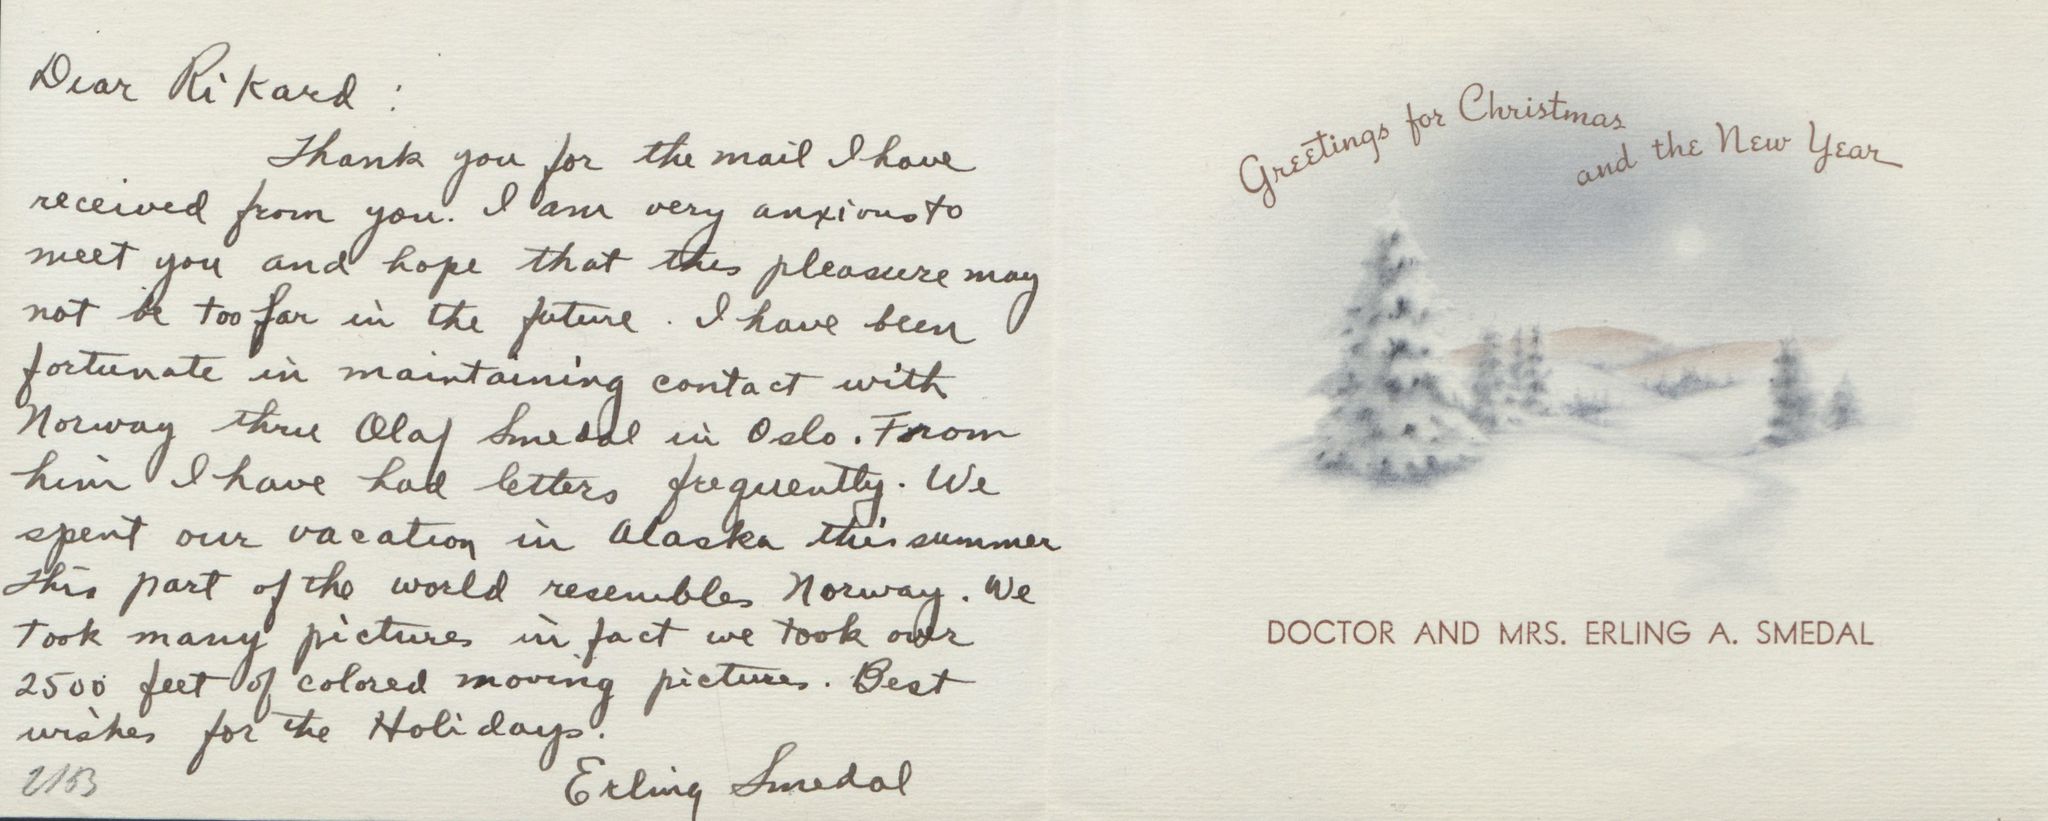 Dear Rikard :
Thank you for the mail I have
received from you. I am very anxious to
meet you and hope that this pleasure may
not be too far in the future. I have been
fortunate in maintaining contact with
Norway thru Olaf Smedal in Oslo. From
him I have had letters frequently. We
spent our vacation in Alaska this summer
this part of the world resembles Norway. We
took many pictures in fact we took over
2500 feet of colored moving pictures. Best
wishes for the Holidays.
Erling Smedal
Greetings for Christmas
and the New Year
DOCTOR AND MRS. ERLING A. SMEDAL